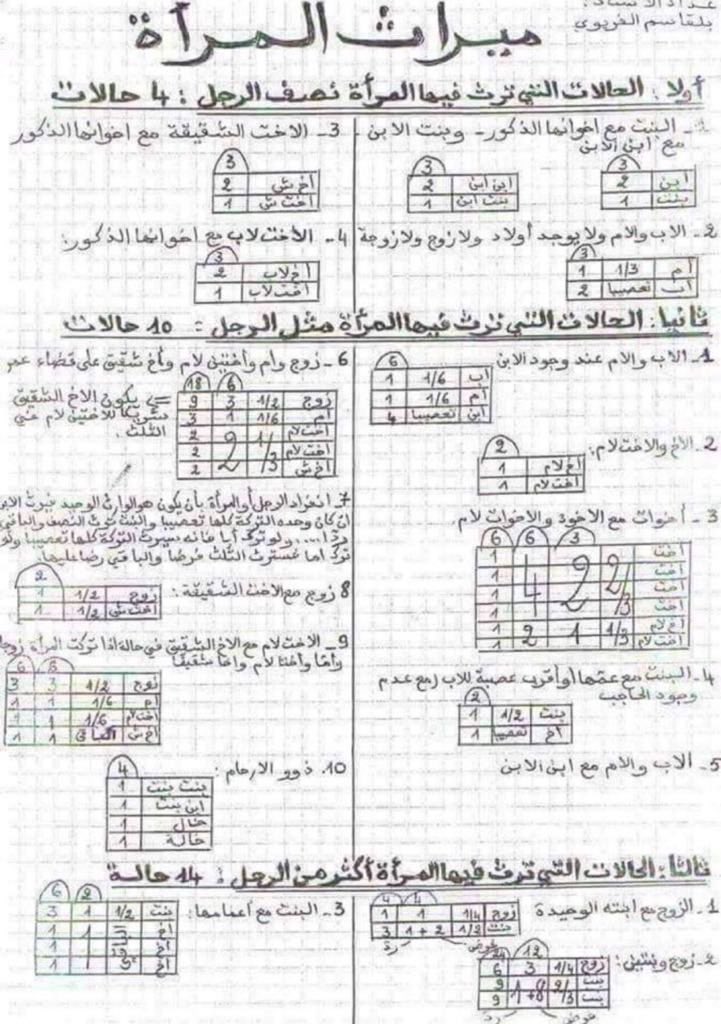 بلقاسم الغريوي
ميراث المرأة
أولا: الحالات التي ترث فيها المرأة نصف الرجل: 4 حالات
1- البنت مع اخوانها الذكور - وبنت الابن
مع ابن الابن
3
ابن 2
بنت 1
3
ابن ابن 2
بنت ابن 1
2- الاب والام ولا يوجد أولاد ولا زوج ولا زوجة
3
أم 1/3 1
أب تعصيبا 2
3- الاخت الشقيقة مع اخوانها الذكور
3
أخ ش 2
أخت ش 1
4- الأخت لاب مع اخوانها الذكور:
3
أخ لاب 2
أخت لاب 1
ثانيا: الحالات التي ترث فيها المرأة مثل الرجل: 10 حالات
1- الاب والام عند وجود الابن
6
أب 1/6 1
أم 1/6 1
ابن تعصيبا 4
2- الاخ والاخت لام:
2
أخ لام 1
أخت لام 1
3- أخوات مع الاخوة والاخوات لام.
3 6 6
أخت 2/3 2 4 1
أخت 1
أخت 1
أخت 1
أخ لام 1/3 1 2 1
أخت لام 1
4- البنت مع عمها أو أقرب عصبة للاب (مع عدم
وجود الحاجب
2
بنت 1/2 1
أخ تعصيبا 1
5- الاب والام مع ابن الابن
6- زوج وأم وأختين لام وأخ شقيق على قضاء عمر
6 18
زوج 1/2 3 9
أم 1/6 1 3
أخت لام 1/3 2 2
أخت لام 2
أخ ش 2
<= يكون الاخ الشقيق
شريكا للاختين لام في
الثلث.
7- انفراد الرجل أو المرأة بأن يكون هو الوارث الوحيد فيرث الابن
ان كان وحده التركة كلها تعصيبا والبنت ترث النصف والباقي
ردا..... ولو ترك أبا فانه سيرث التركة كلها تعصيبا ولو
ترك أما فسترث الثلث فرضا والباقي ردا عليها.
8 زوج مع الاخت الشقيقة:
2
زوج 1/2 1
أخت ش 1/2 1
9- الاخت لام مع الاخ الشقيق في حالة اذا تركت المرأة زوجا
وأما وأختا لأم وأخا شقيقا
6 6
زوج 1/2 3 3
أم 1/6 1 1
أخت لام 1/6 1 1
أخ ش الباقي 1 1
10. ذوو الارحام:
4
بنت بنت 1
ابن بنت 1
خال 1
خالة 1
ثالثا: الحالات التي ترث فيها المرأة أكثر من الرجل: 14 حالة
1- الزوج مع ابنته الوحيدة
4 4
زوج 1/4 1 1
بنت 1/2 2 + 1 3
فرض رد
2- زوج وبنتين:
12 24
زوج 1/4 3 6
بنت 2/3 8+1 9
بنت 9
فرض رد
3- البنت مع أعمامها:
2 6
بنت 1/2 1 3
أخ 1 1
أخ 1
أخ 1